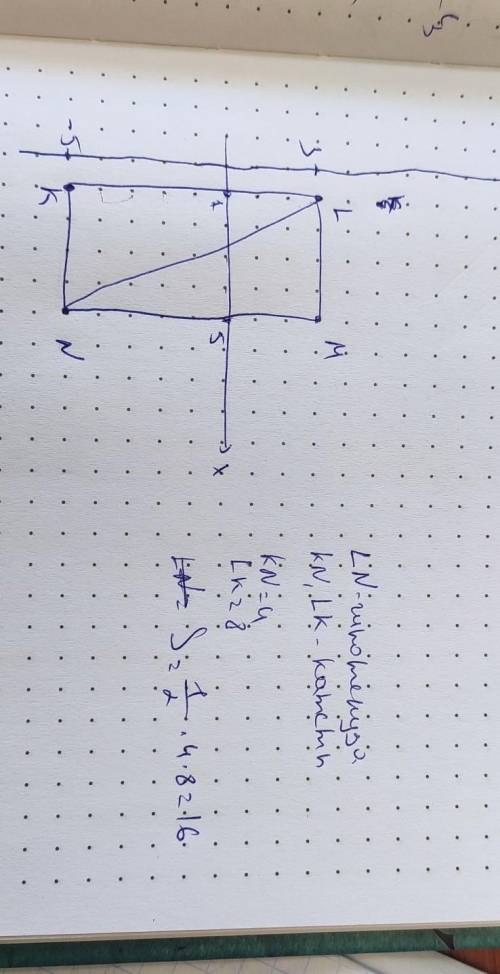 L
M
3
1
5
x
-5
K
N
LN - гипотенуза
KN, LK - катеты
KN = 4
LK = 8
S = 1/2 · 4 · 8 = 16